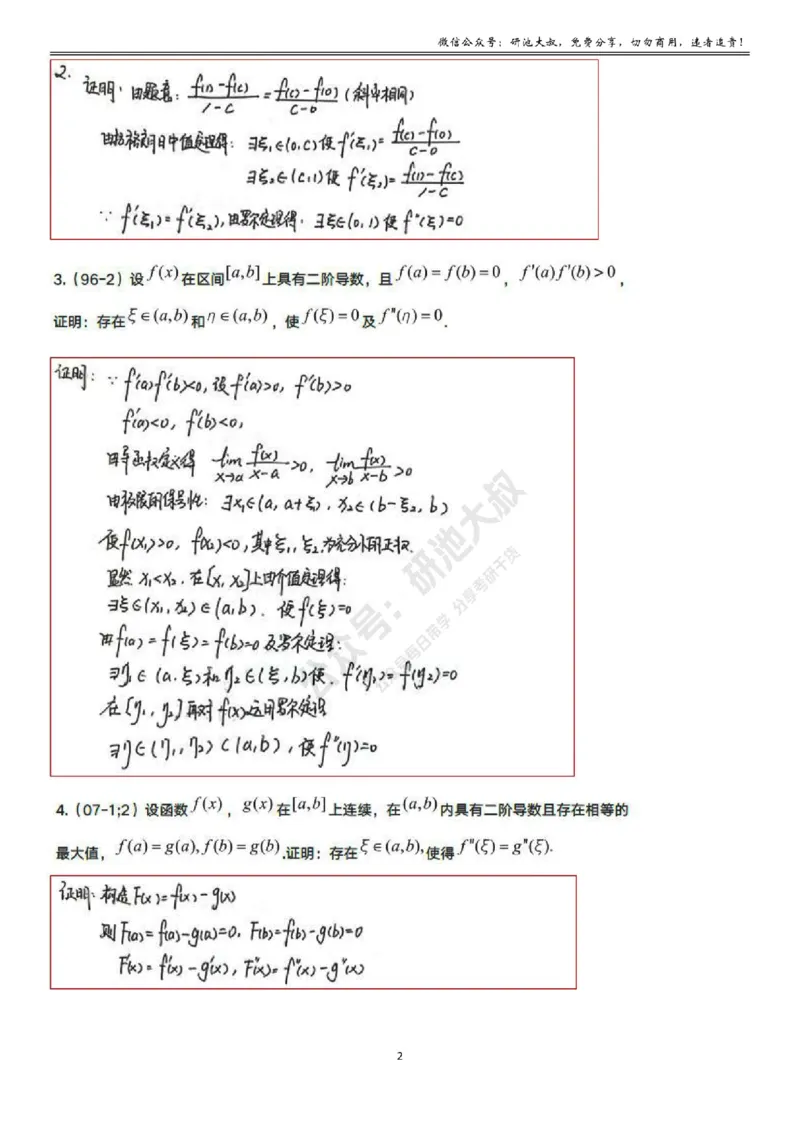 微信公众号：研池大叔，免费分享，切勿商用，违者追责！
2.
证明：由题意：f(1)-f(c)/1-c = f(c)-f(0)/c-0 (斜率相同)
由拉格朗日中值定理得：∃ξ₁∈(0,c)使f'(ξ₁)= f(c)-f(0)/c-0
∃ξ₂∈(c,1)使 f'(ξ₂)= f(1)-f(c)/1-c
∵ f'(ξ₁)=f'(ξ₂),由罗尔定理得：∃ξ∈(0,1)使f"(ξ)=0
3.（96-2）设 f(x) 在区间[a,b]上具有二阶导数，且 f(a)=f(b)=0，f'(a)f'(b)>0，
证明：存在ξ∈(a,b)和η∈(a,b)，使 f(ξ)=0及 f"(η)=0.
证明：∵ f'(a)f'(b)>0,设f'(a)>0, f'(b)>0
f'(a)<0, f'(b)<0,
由导函数定义得 lim x→a f(x)/x-a >0, lim x→b f(x)/x-b >0
由极限的保号性：∃x₁∈(a, a+ξ₁), x₂∈(b-ξ₂, b)
使f(x₁)>0, f(x₂)<0,其中ξ₁,ξ₂为充分小的正数.
显然 x₁<x₂. 在[x₁, x₂]上由介值定理得：
∃ξ∈(x₁, x₂)∈(a,b). 使f(ξ)=0
由f(a)=f(ξ)=f(b)=0及罗尔定理：
∃η₁∈(a,ξ)和η₂∈(ξ,b)使. f'(η₁)=f'(η₂)=0
在[η₁, η₂]再对f'(x)运用罗尔定理
∃η∈(η₁, η₂)⊂(a,b), 使f"(η)=0
公众号：研池大叔
公众号考日带学 分享考研干货
4.（07-1;2）设函数 f(x)，g(x)在[a,b]上连续，在(a,b)内具有二阶导数且存在相等的
最大值，f(a)=g(a),f(b)=g(b).证明：存在ξ∈(a,b),使得 f"(ξ)=g"(ξ).
证明：构造F(x)=f(x)-g(x)
则F(a)=f(a)-g(a)=0, F(b)=f(b)-g(b)=0
F'(x)=f'(x)-g'(x), F"(x)=f"(x)-g"(x)
2